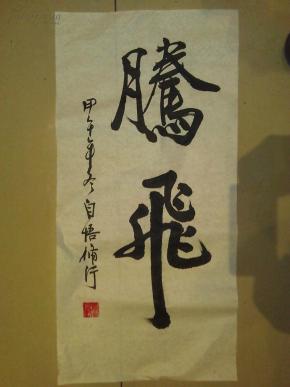 騰飛
甲午年冬自悟脩行